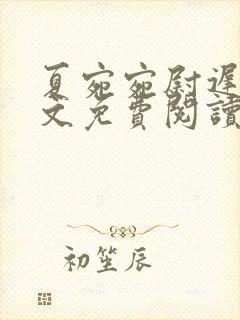 夏宛宛尉遲
文免費閱讀
初笙辰